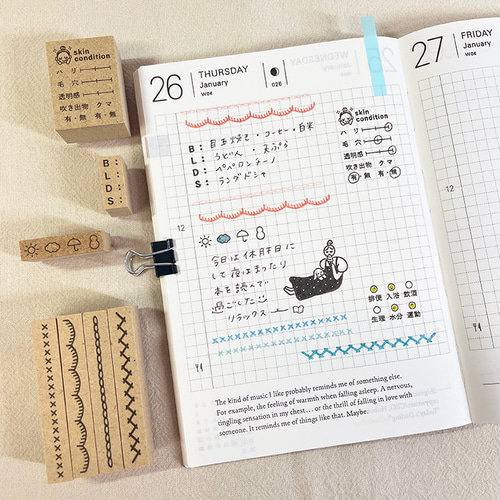 skin
condition
ハリ
毛穴
透明感
吹き出物 クマ
有・無 有・無
B:
L:
D:
S:
26
THURSDAY
January
W04
026
WEDNESDAY
25
27
FRIDAY
January
W04
B: 目玉焼き・コーヒー・白米
L: うどん・天ぷら
D: ペペロンチーノ
S: ラングドシャ
skin
condition
ハリ
毛穴
透明感
吹き出物 クマ
有・無 有・無
12
12
今日は休肝日に
して夜はまったり
本を読んで
過ごした
リラックス
排便 入浴 飲酒
生理 水分 運動
The kind of music I like probably reminds me of something else.
For example, the feeling of warmth when falling asleep. A nervous,
tingling sensation in my chest... or the thrill of falling in love with
someone. It reminds me of things like that. Maybe.